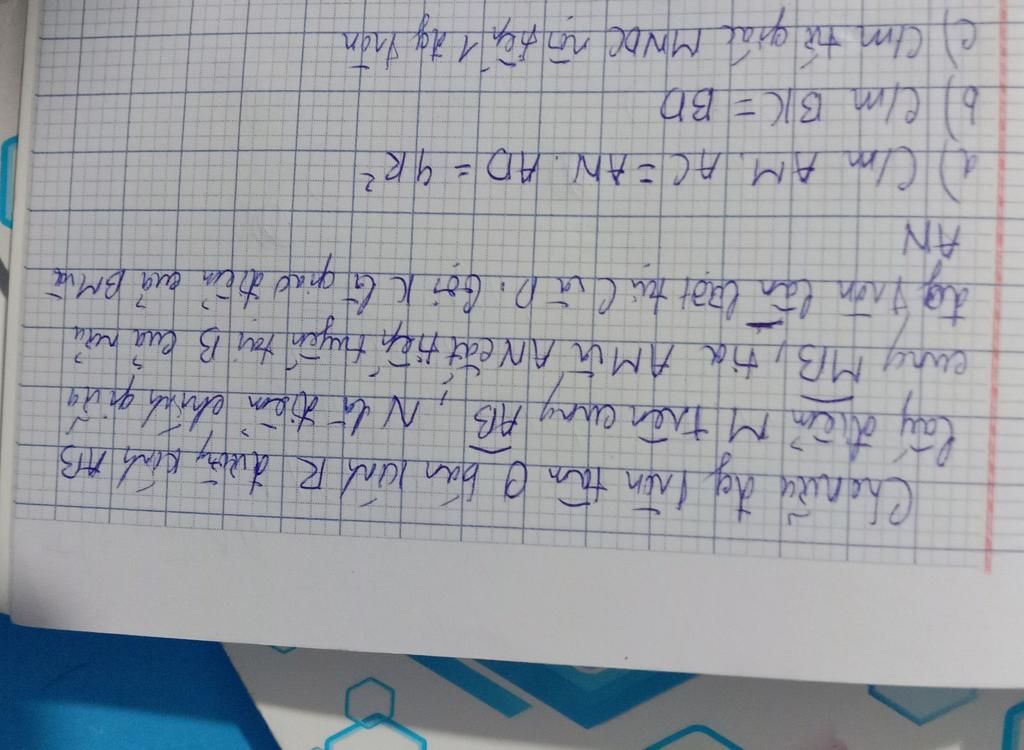 Cho nửa đg tròn tâm O bán kính R đường kính AB
lấy điểm M trên cung AB, N là điểm chính giữa
cung MB, tia AM và AN cắt tiếp tuyến tại B của nửa
đg tròn lần lượt tại C và D. Gọi K là giao điểm của BM và
AN
a) C/m AM. AC = AN. AD = 4R²
b) C/m BK = BD
c) C/m tứ giác MNDC nội tiếp 1 đg tròn